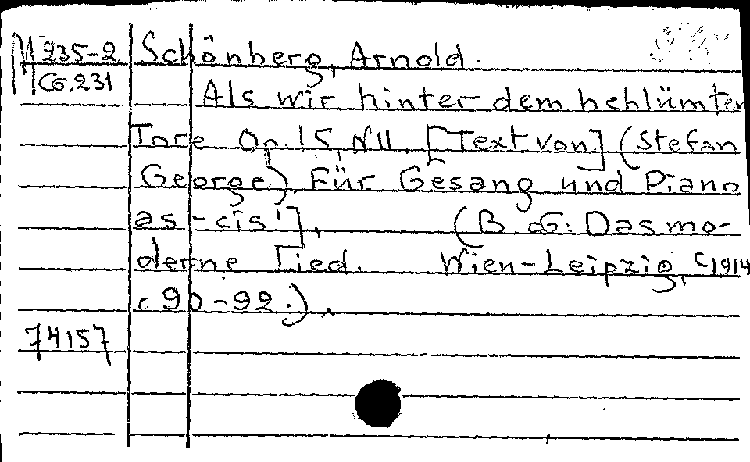 M 235-2 Schönberg, Arnold.
CG.231
Als wir hinter dem behlümten
Tore Op. 15, N11. [Text von] (Stefan
George). Für Gesang und Piano
as-cis'].
(B. CG: Das mo-
derne Lied. Wien-Leipzig, c1914
c. 90-92.).
74157